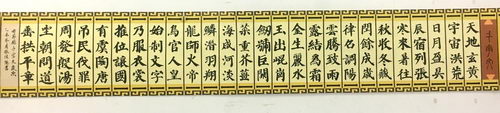 千字文
天地玄黃
宇宙洪荒
日月盈昃
辰宿列張
寒來暑往
秋收冬藏
閏餘成歲
律召調陽
雲騰致雨
露結為霜
金生麗水
玉出崐岡
劍號巨闕
菜重芥薑
海咸河淡
鱗潛羽翔
龍師火帝
鳥官人皇
始制文字
乃服衣裳
推位讓國
有虞陶唐
吊民伐罪
周發殷湯
坐朝問道
垂拱平章